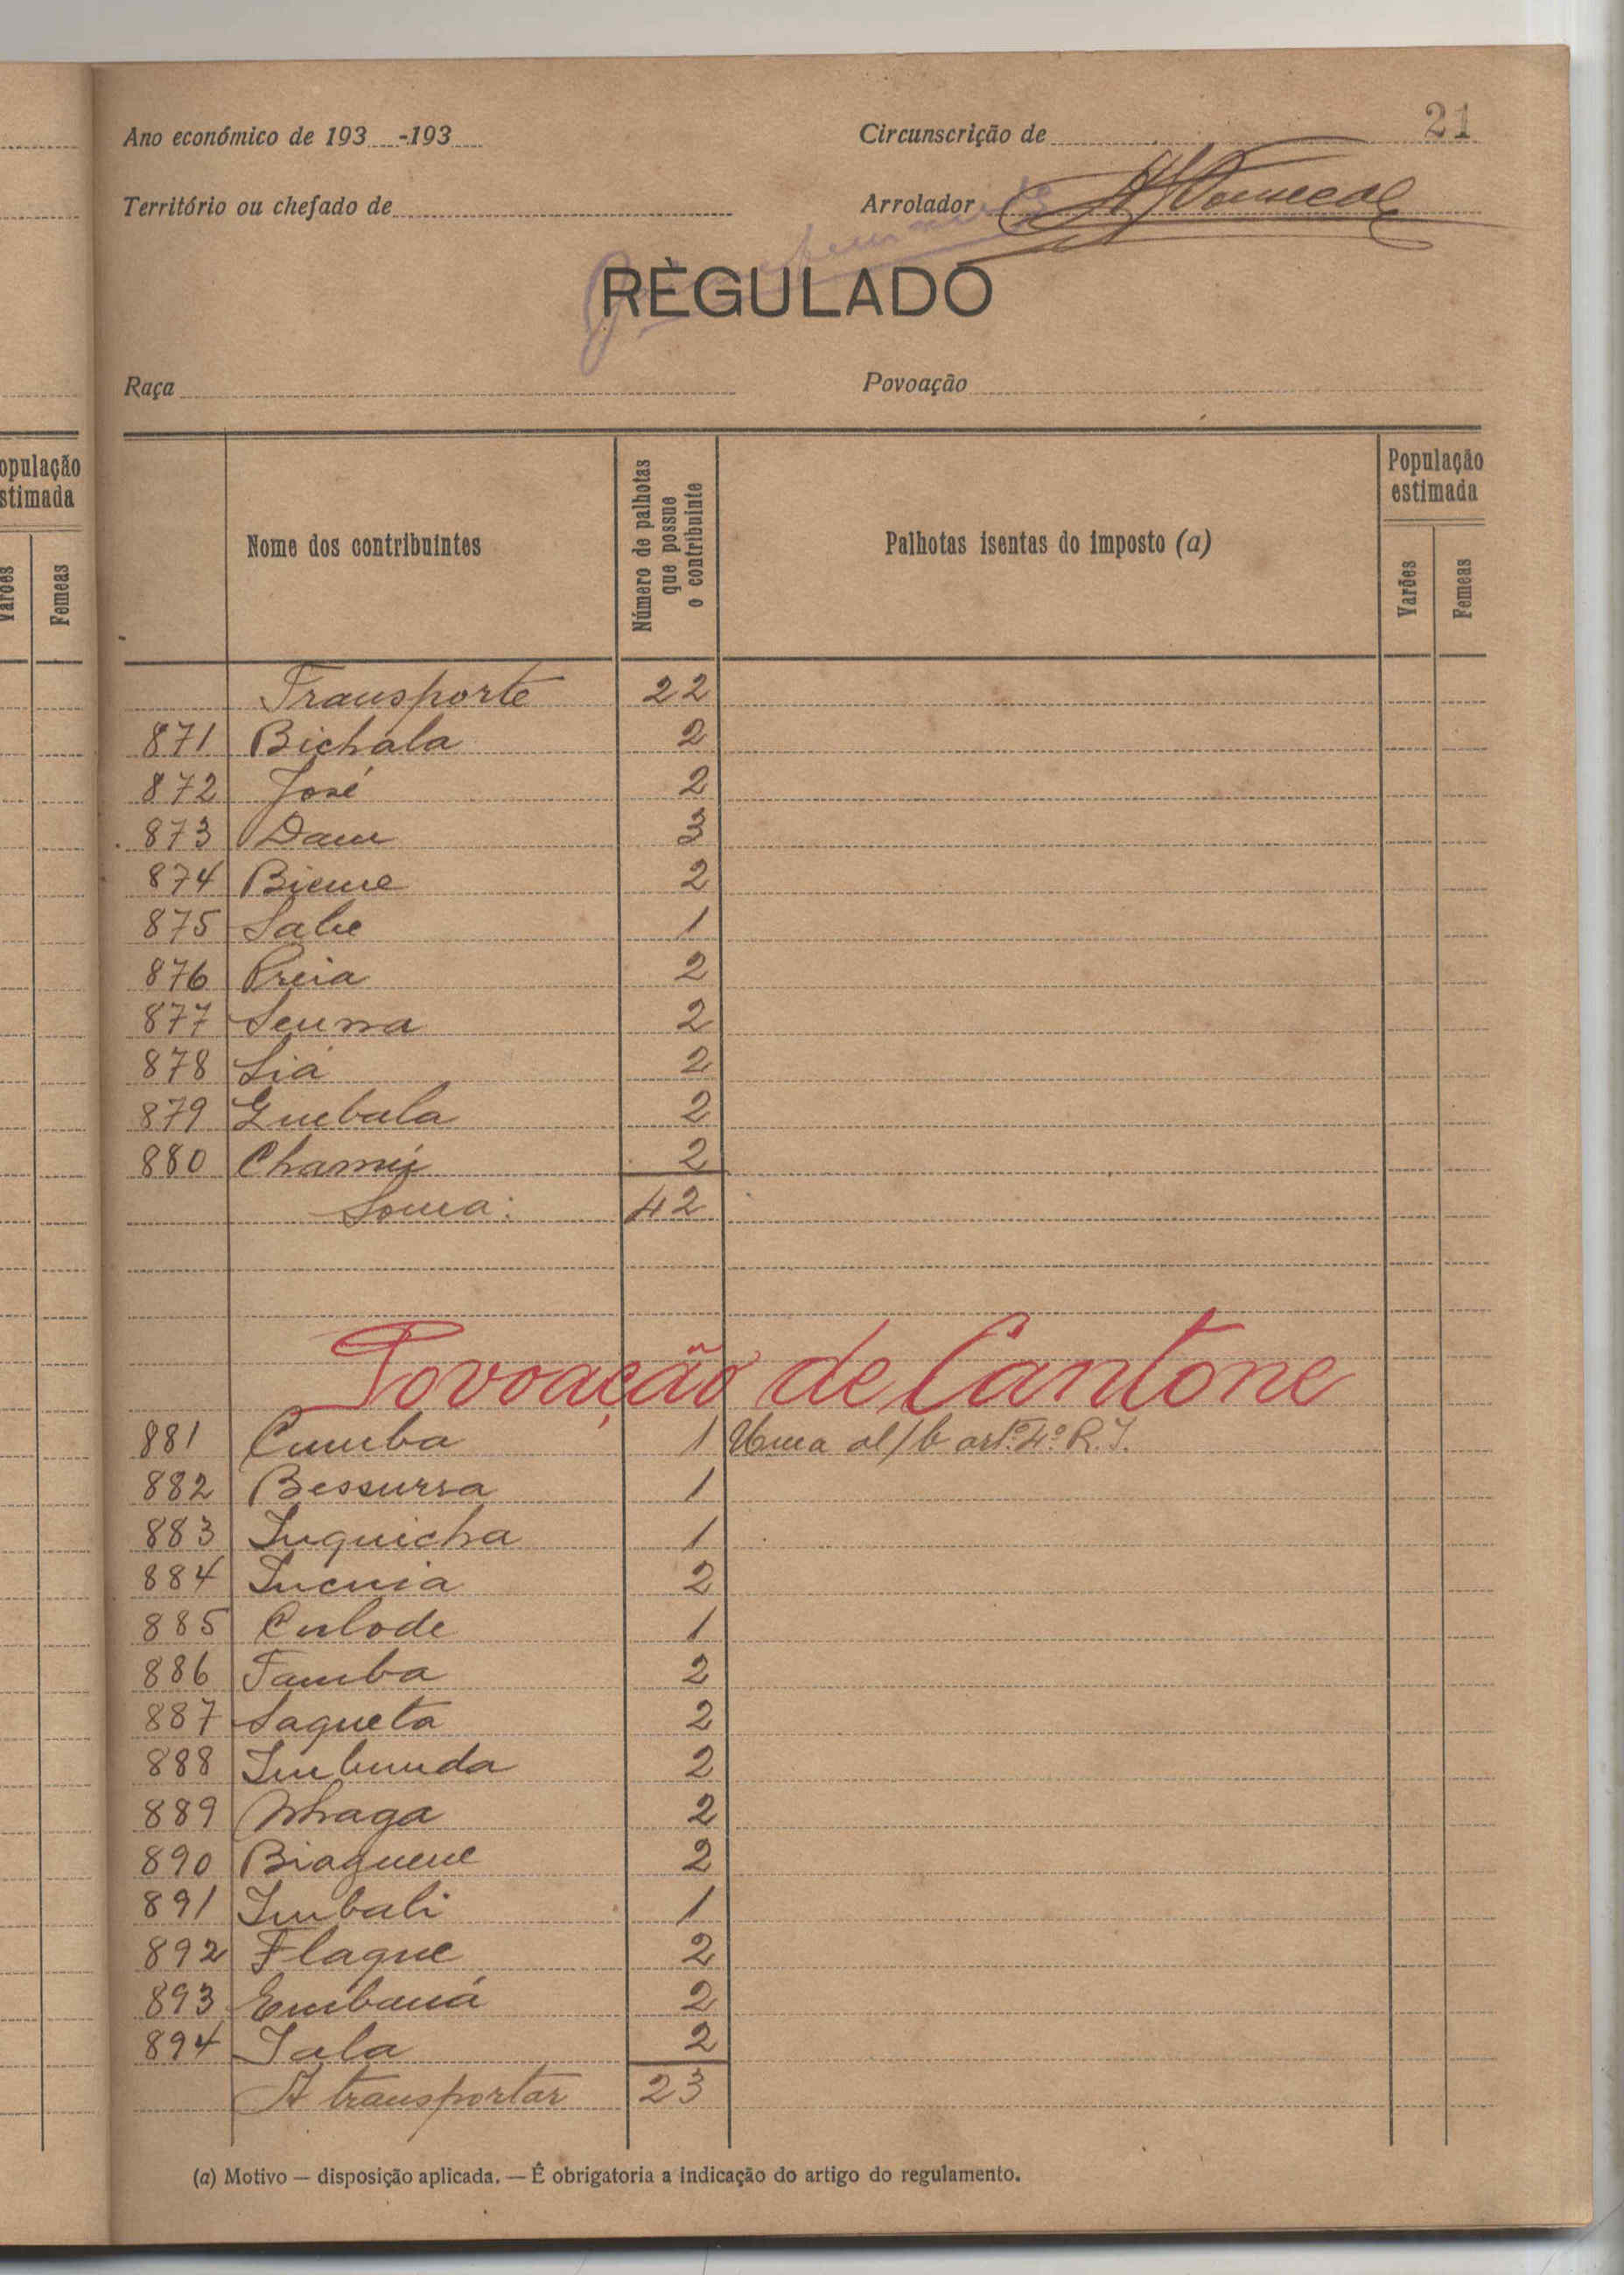 21
Ano económico de 193 -193
Circunscrição de
Território ou chefado de
Arrolador
RÈGULADO
Raça
Povoação
opulação
stimada
Varões
Femeas
Nome dos contribuintes
Número de palhotas
que possue
o contribuinte
Palhotas isentas do imposto (a)
População
estimada
Varões
Femeas
Transporte 22
871 Bichala 2
872 José 2
873 Dam 3
874 Bieme 2
875 Sabe 1
876 Preia 2
877 Senna 2
878 Siá 2
879 Guebala 2
880 Chamú 2
Soma: 42
Povoação de Cantone
881 Cumba 1 Uma al/b artº. 4º R.I.
882 Bessursa 1
883 Inquicha 1
884 Incuia 2
885 Culode 1
886 Tamba 2
887 Saqueta 2
888 Imbunda 2
889 Nhaga 2
890 Biaguene 2
891 Imbali 1
892 Flaque 2
893 Embaná 2
894 Iala 2
A transportar 23
(a) Motivo — disposição aplicada. — É obrigatoria a indicação do artigo do regulamento.